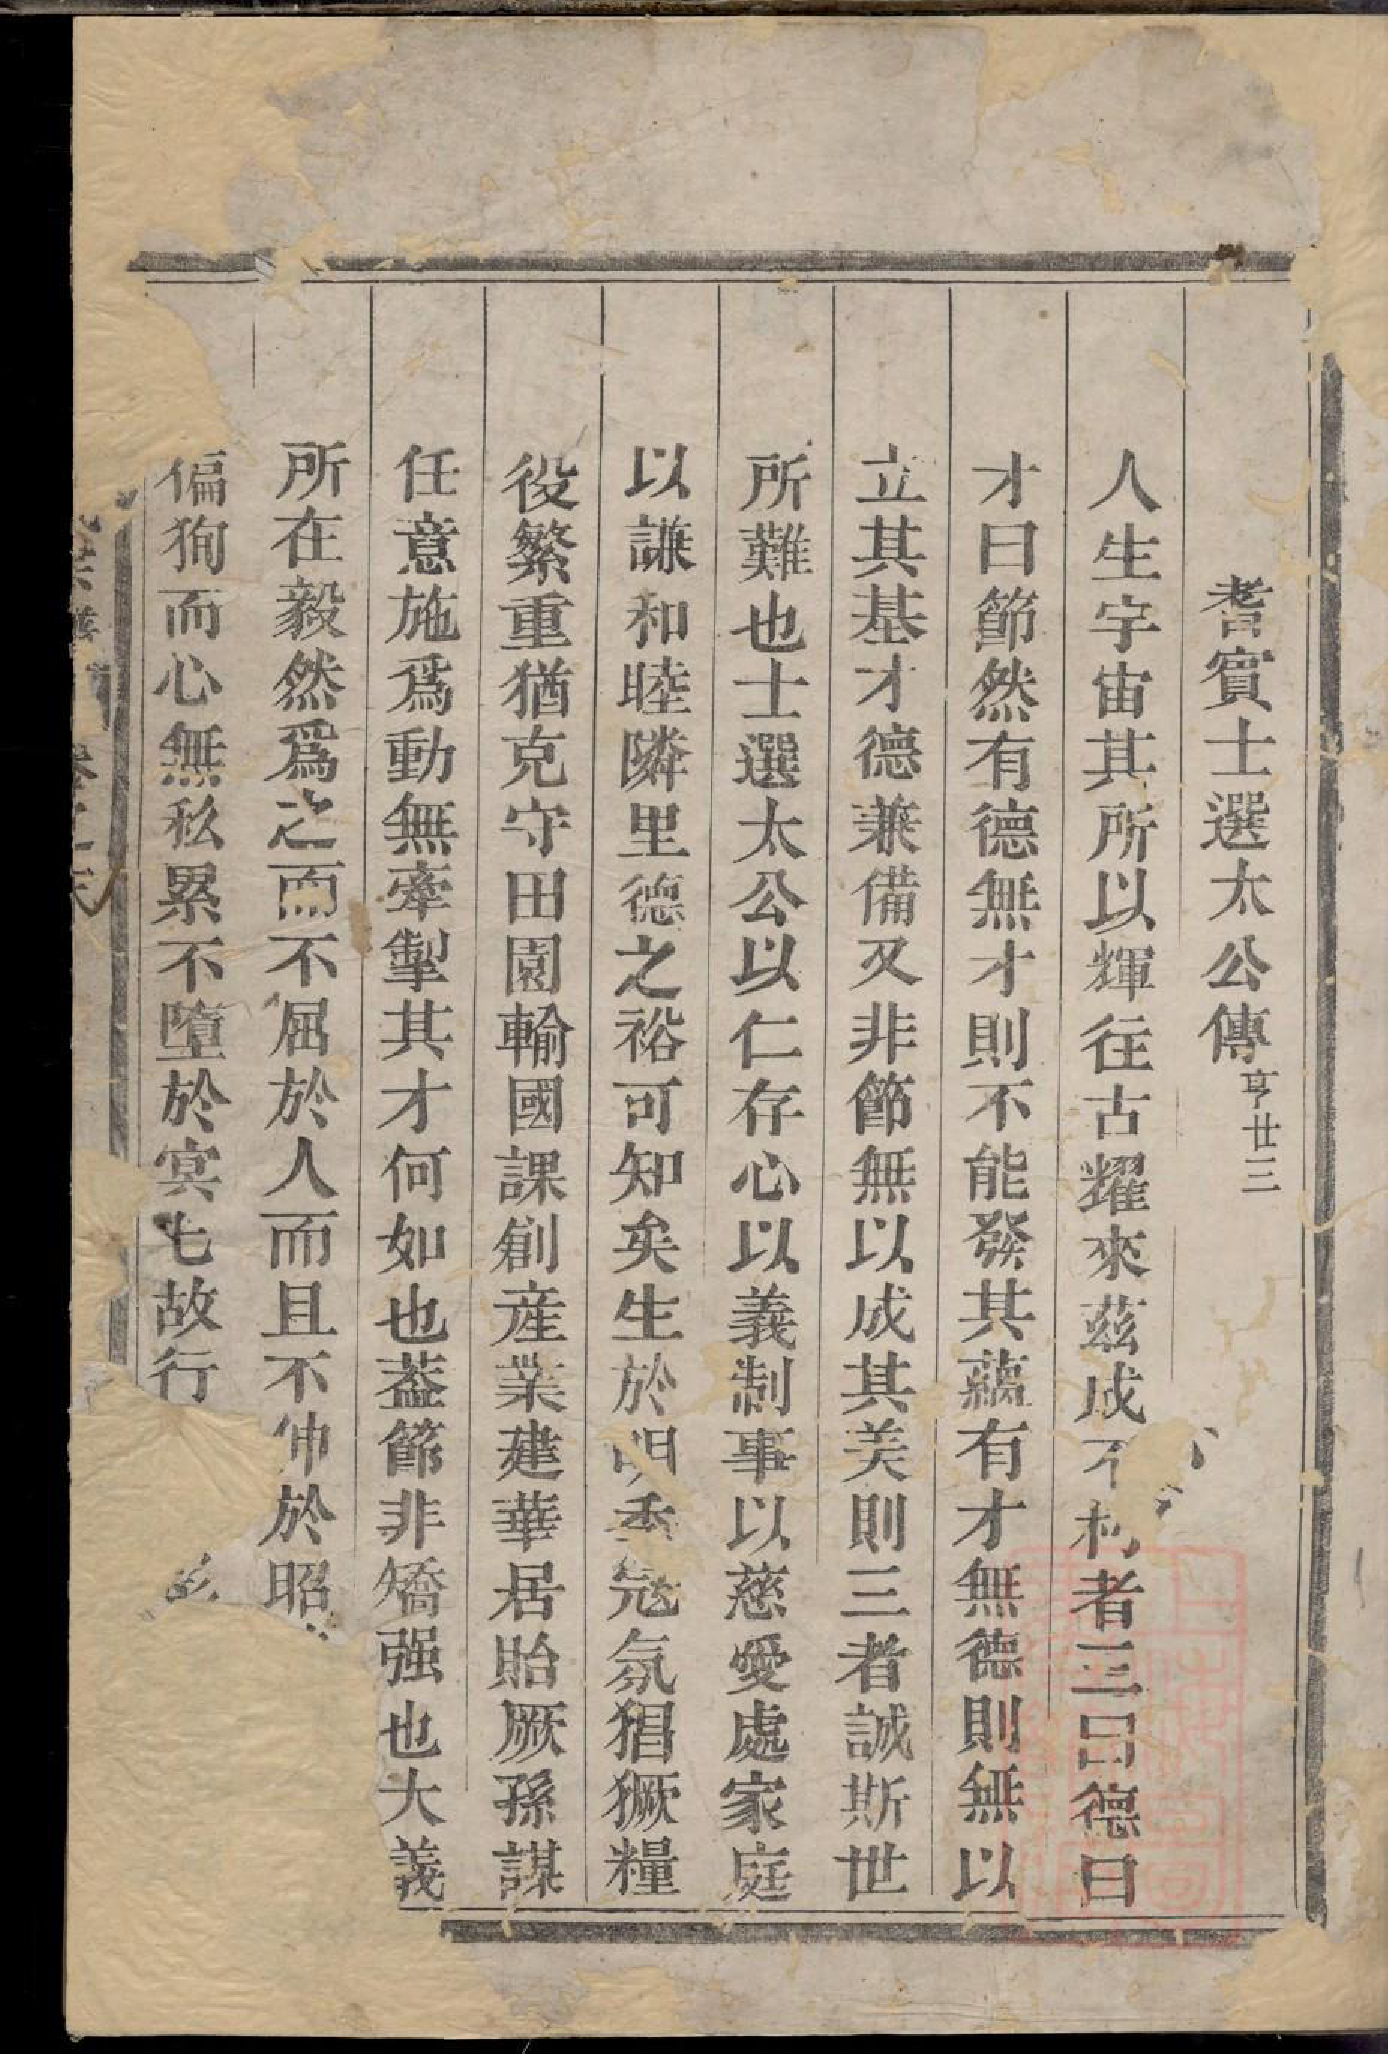 耆賓士選太公傳亨廿三
人生宇宙其所以輝往古耀來茲成不朽者三曰德曰
才曰節然有德無才則不能發其蘊有才無德則無以
立其基才德兼備又非節無以成其美則三者誠斯世
所難也士選太公以仁存心以義制事以慈愛處家庭
以謙和睦隣里德之裕可知矣生於明季冦氛猖獗糧
役繁重猶克守田園輸國課創産業建華居貽厥孫謀
任意施爲動無牽掣其才何如也葢節非矯强也大義
所在毅然爲之而不屈於人而且不伸於昭
偏狥而心無私累不墮於冥七故行